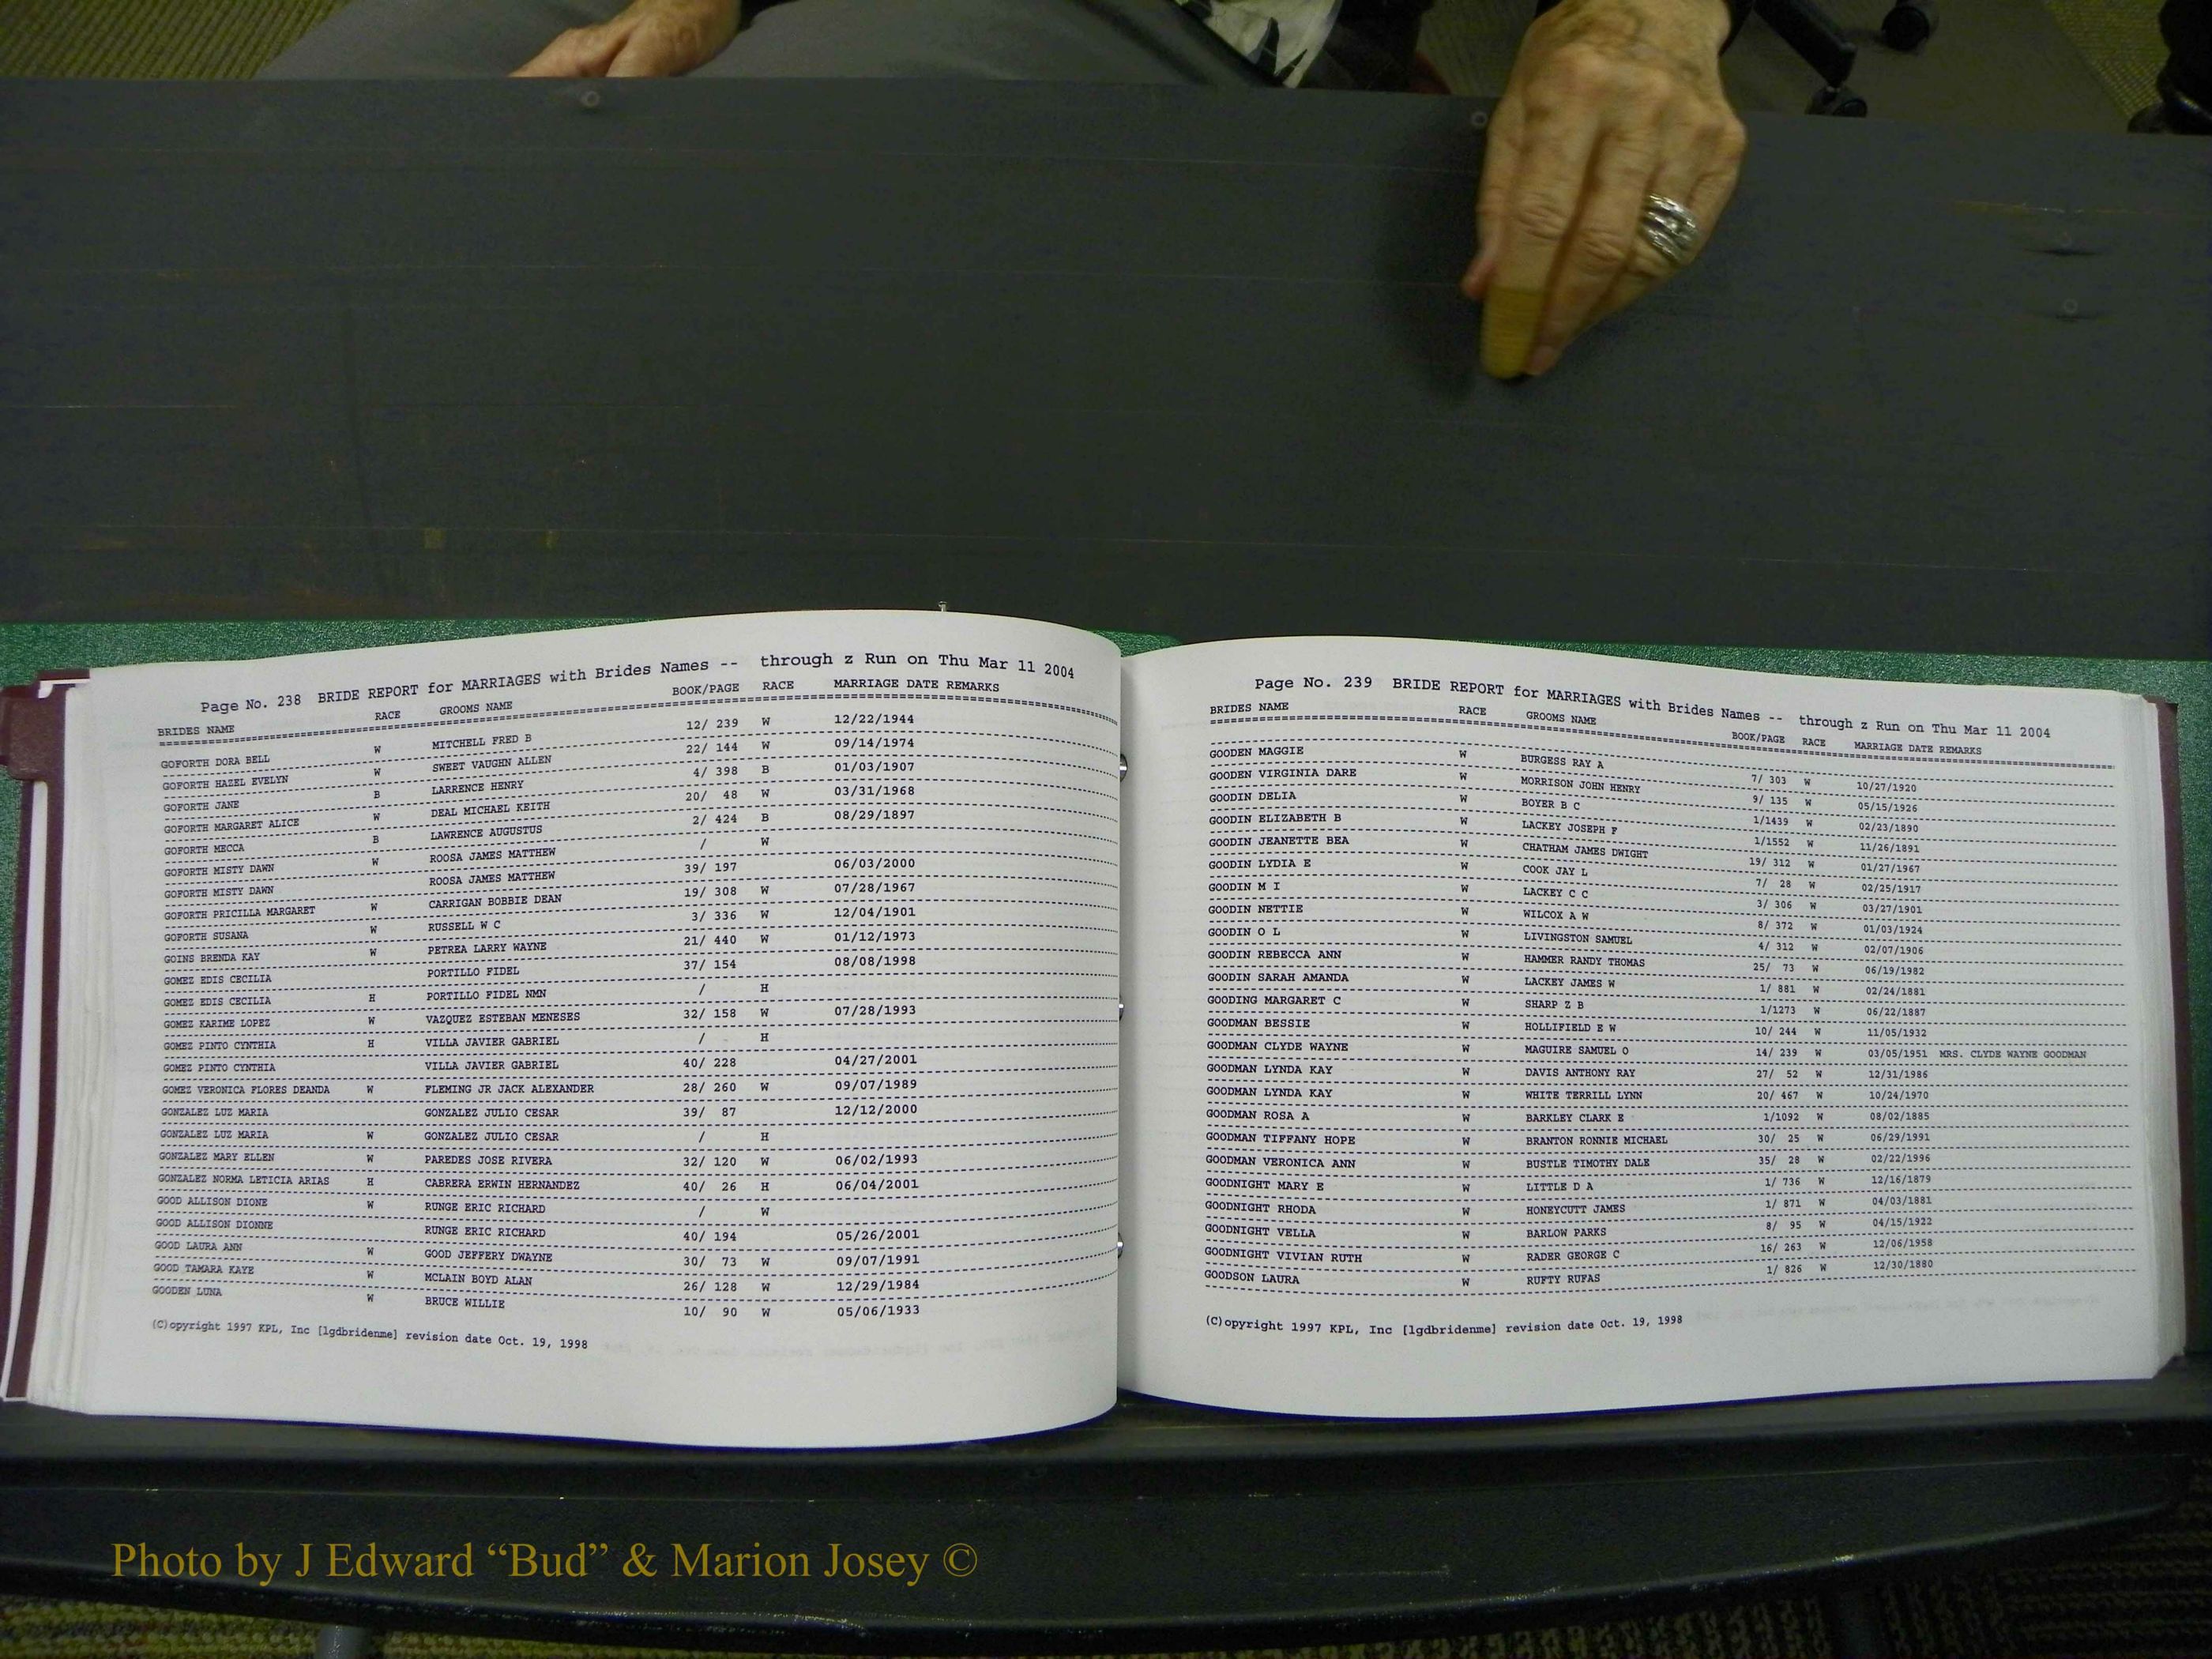 Page No. 238 BRIDE REPORT for MARRIAGES with Brides Names -- through z Run on Thu Mar 11 2004
BRIDES NAME RACE GROOMS NAME BOOK/PAGE RACE MARRIAGE DATE REMARKS
GOFORTH DORA BELL W MITCHELL FRED B 12/ 239 W 12/22/1944
GOFORTH HAZEL EVELYN W SWEET VAUGHN ALLEN 22/ 144 W 09/14/1974
GOFORTH JANE B LARRENCE HENRY 4/ 398 B 01/03/1907
GOFORTH MARGARET ALICE W DEAL MICHAEL KEITH 20/ 48 W 03/31/1968
GOFORTH MECCA B LAWRENCE AUGUSTUS 2/ 424 B 08/29/1897
GOFORTH MISTY DAWN W ROOSA JAMES MATTHEW / W
GOFORTH MISTY DAWN ROOSA JAMES MATTHEW 39/ 197 06/03/2000
GOFORTH PRICILLA MARGARET W CARRIGAN BOBBIE DEAN 19/ 308 W 07/28/1967
GOFORTH SUSANA W RUSSELL W C 3/ 336 W 12/04/1901
GOINS BRENDA KAY W PETREA LARRY WAYNE 21/ 440 W 01/12/1973
GOMEZ EDIS CECILIA PORTILLO FIDEL 37/ 154 08/08/1998
GOMEZ EDIS CECILIA H PORTILLO FIDEL NMN / H
GOMEZ KARIME LOPEZ W VAZQUEZ ESTEBAN MENESES 32/ 158 W 07/28/1993
GOMEZ PINTO CYNTHIA H VILLA JAVIER GABRIEL / H
GOMEZ PINTO CYNTHIA VILLA JAVIER GABRIEL 40/ 228 04/27/2001
GOMEZ VERONICA FLORES DEANDA W FLEMING JR JACK ALEXANDER 28/ 260 W 09/07/1989
GONZALEZ LUZ MARIA GONZALEZ JULIO CESAR 39/ 87 12/12/2000
GONZALEZ LUZ MARIA W GONZALEZ JULIO CESAR / H
GONZALEZ MARY ELLEN W PAREDES JOSE RIVERA 32/ 120 W 06/02/1993
GONZALEZ NORMA LETICIA ARIAS H CABRERA ERWIN HERNANDEZ 40/ 26 H 06/04/2001
GOOD ALLISON DIONE W RUNGE ERIC RICHARD / W
GOOD ALLISON DIONNE RUNGE ERIC RICHARD 40/ 194 05/26/2001
GOOD LAURA ANN W GOOD JEFFERY DWAYNE 30/ 73 W 09/07/1991
GOOD TAMARA KAYE W MCLAIN BOYD ALAN 26/ 128 W 12/29/1984
GOODEN LUNA W BRUCE WILLIE 10/ 90 W 05/06/1933
(C)opyright 1997 KPL, Inc [lgdbridenme] revision date Oct. 19, 1998
Page No. 239 BRIDE REPORT for MARRIAGES with Brides Names -- through z Run on Thu Mar 11 2004
BRIDES NAME RACE GROOMS NAME BOOK/PAGE RACE MARRIAGE DATE REMARKS
GOODEN MAGGIE W BURGESS RAY A 7/ 303 W 10/27/1920
GOODEN VIRGINIA DARE W MORRISON JOHN HENRY 9/ 135 W 05/15/1926
GOODIN DELIA W BOYER B C 1/1439 W 02/23/1890
GOODIN ELIZABETH B W LACKEY JOSEPH F 1/1552 W 11/26/1891
GOODIN JEANETTE BEA W CHATHAM JAMES DWIGHT 19/ 312 W 01/27/1967
GOODIN LYDIA E W COOK JAY L 7/ 28 W 02/25/1917
GOODIN M I W LACKEY C C 3/ 306 W 03/27/1901
GOODIN NETTIE W WILCOX A W 8/ 372 W 01/03/1924
GOODIN O L W LIVINGSTON SAMUEL 4/ 312 W 02/07/1906
GOODIN REBECCA ANN W HAMMER RANDY THOMAS 25/ 73 W 06/19/1982
GOODIN SARAH AMANDA W LACKEY JAMES W 1/ 881 W 02/24/1881
GOODING MARGARET C W SHARP Z B 1/1273 W 06/22/1887
GOODMAN BESSIE W HOLLIFIELD E W 10/ 244 W 11/05/1932
GOODMAN CLYDE WAYNE W MAGUIRE SAMUEL O 14/ 239 W 03/05/1951 MRS. CLYDE WAYNE GOODMAN
GOODMAN LYNDA KAY W DAVIS ANTHONY RAY 27/ 52 W 12/31/1986
GOODMAN LYNDA KAY W WHITE TERRILL LYNN 20/ 467 W 10/24/1970
GOODMAN ROSA A W BARKLEY CLARK E 1/1092 W 08/02/1885
GOODMAN TIFFANY HOPE W BRANTON RONNIE MICHAEL 30/ 25 W 06/29/1991
GOODMAN VERONICA ANN W BUSTLE TIMOTHY DALE 35/ 28 W 02/22/1996
GOODNIGHT MARY E W LITTLE D A 1/ 736 W 12/16/1879
GOODNIGHT RHODA W HONEYCUTT JAMES 1/ 871 W 04/03/1881
GOODNIGHT VELLA W BARLOW PARKS 8/ 95 W 04/15/1922
GOODNIGHT VIVIAN RUTH W RADER GEORGE C 16/ 263 W 12/06/1958
GOODSON LAURA W RUFTY RUFAS 1/ 826 W 12/30/1880
(C)opyright 1997 KPL, Inc [lgdbridenme] revision date Oct. 19, 1998
Photo by J Edward “Bud” & Marion Josey ©